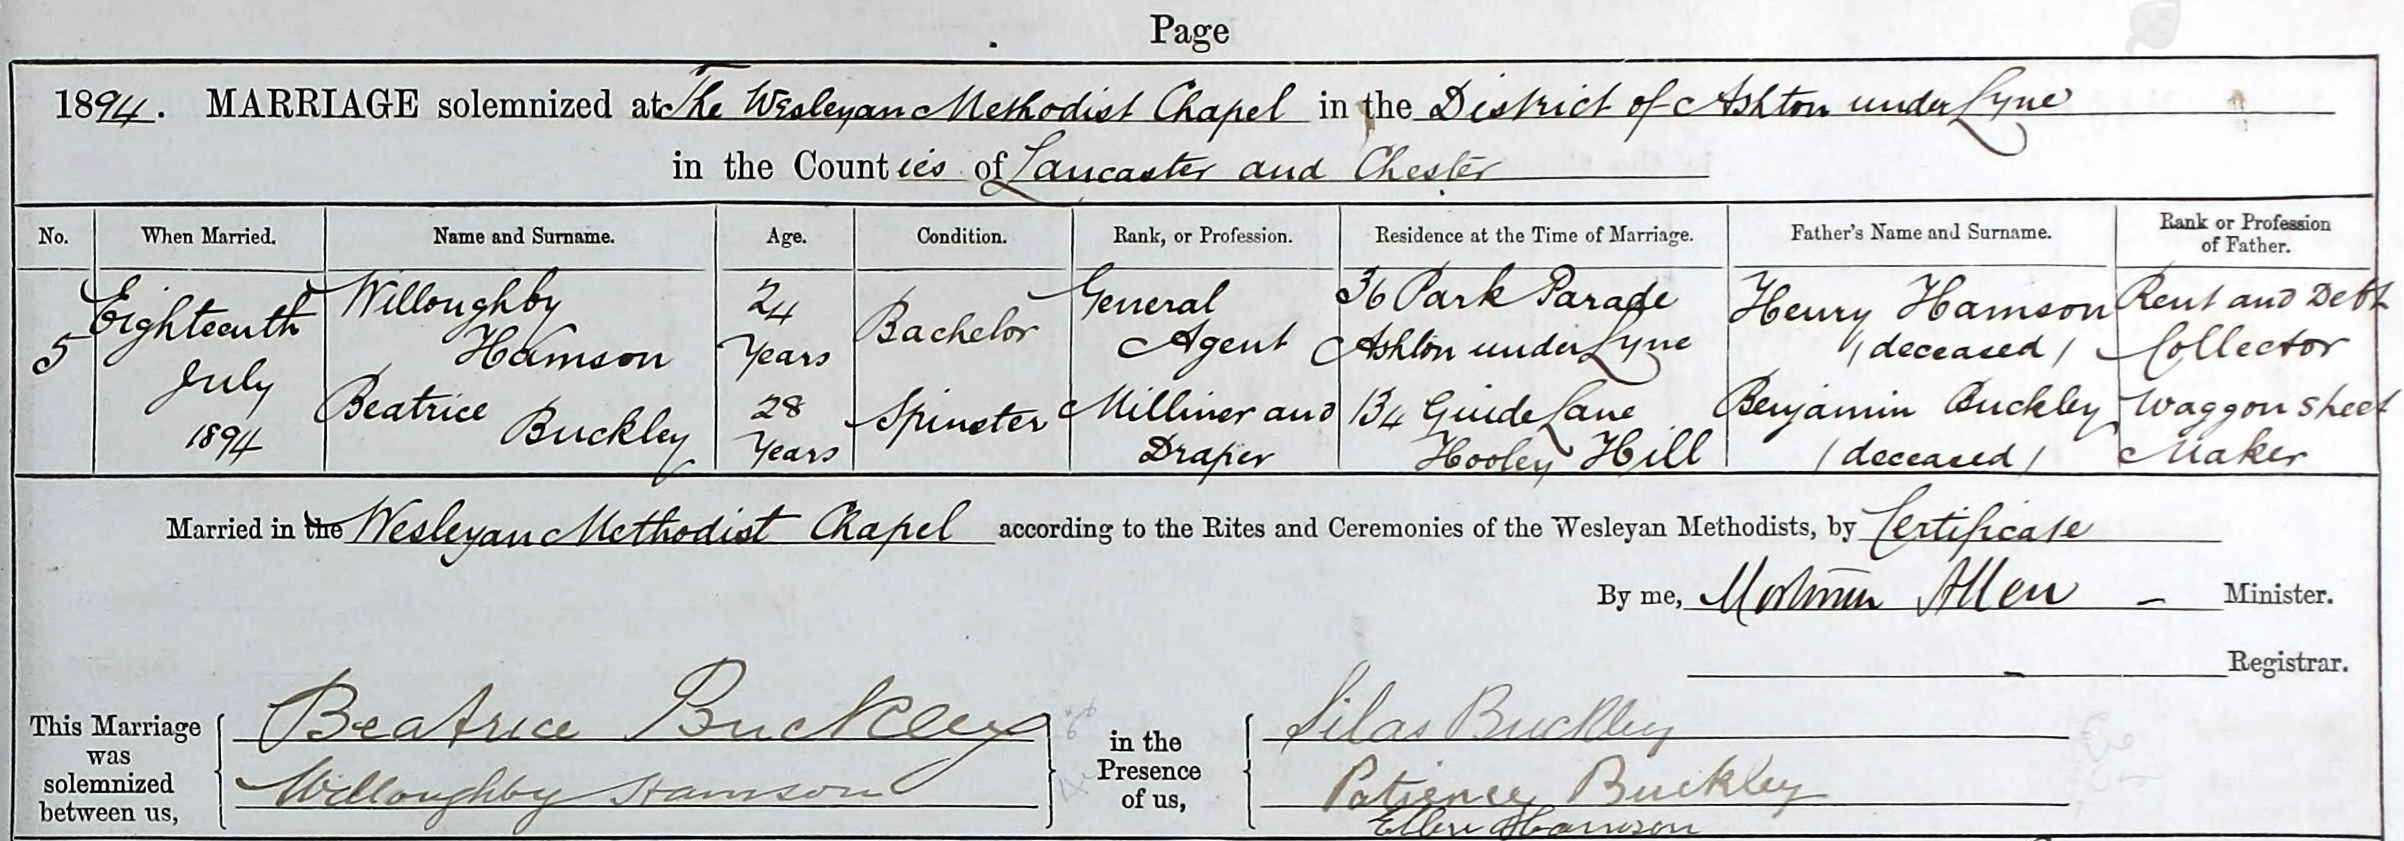 Page
1894. MARRIAGE solemnized at The Wesleyan Methodist Chapel in the District of Ashton under Lyne
in the Counties of Lancaster and Chester
No. When Married. Name and Surname. Age. Condition. Rank, or Profession. Residence at the Time of Marriage. Father's Name and Surname. Rank or Profession of Father.
5 Eighteenth July 1894
Willoughby Hamson 24 Years Bachelor General Agent 36 Park Parade Ashton under Lyne Henry Hamson (deceased) Rent and Debt Collector
Beatrice Buckley 28 Years Spinster Milliner and Draper 134 Guide Lane Hooley Hill Benjamin Buckley (deceased) Waggon Sheet Maker
Married in the Wesleyan Methodist Chapel according to the Rites and Ceremonies of the Wesleyan Methodists, by Certificate
By me, Mortimer Allen - Minister.
- Registrar.
This Marriage was solemnized between us,
Beatrice Buckley
Willoughby Hamson
in the Presence of us,
Silas Buckley
Patience Buckley
Ellen Hamson